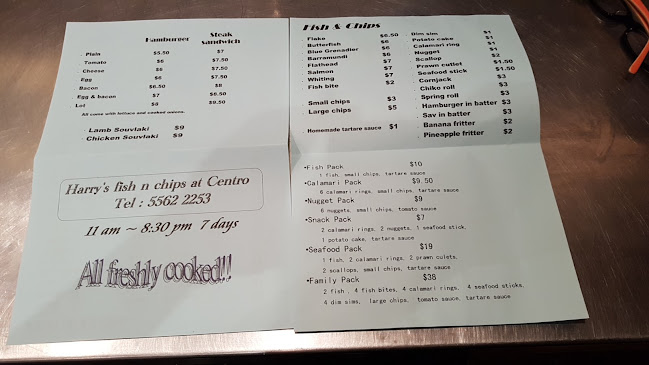 Hamburger Steak sandwich
Plain $5.50 $7
Tomato $6 $7.50
Cheese $6 $7.50
Egg $6 $7.50
Bacon $6.50 $8
Egg & bacon $7
Lot $8 $9.50
All come with lettuce and cooked onions.
Lamb Souvlaki $9
Chicken Souvlaki $9
Harry's fish n chips at Centro
Tel : 5562 2253
11 am ~ 8:30 pm 7 days
All freshly cooked!!!
Fish & Chips
Flake $6.50
Butterfish $6
Blue Grenadier $6
Barramundi $6
Flathead $7
Salmon $7
Whiting $7
Fish bite $2
Small chips $3
Large chips $5
Homemade tartare sauce $1
Dim sim $1
Potato cake $1
Calamari ring $1
Nugget $1
Scallop $2
Prawn cutlet $1.50
Seafood stick $1.50
Cornjack $3
Chiko roll $3
Spring roll $3
Hamburger in batter $3
Sav in batter $3
Banana fritter $2
Pineapple fritter $2
•Fish Pack $10
1 fish, small chips, tartare sauce
•Calamari Pack $9.50
6 calamari rings, small chips, tartare sauce
•Nugget Pack $9
6 nuggets, small chips, tomato sauce
•Snack Pack $7
2 calamari rings, 2 nuggets, 1 seafood stick,
1 potato cake, tartare sauce
•Seafood Pack $19
1 fish, 2 calamari rings, 2 prawn culets,
2 scallops, small chips, tartare sauce
•Family Pack $38
2 fish , 4 fish bites, 4 calamari rings, 4 seafood sticks,
4 dim sims, large chips, tomato sauce, tartare sauce